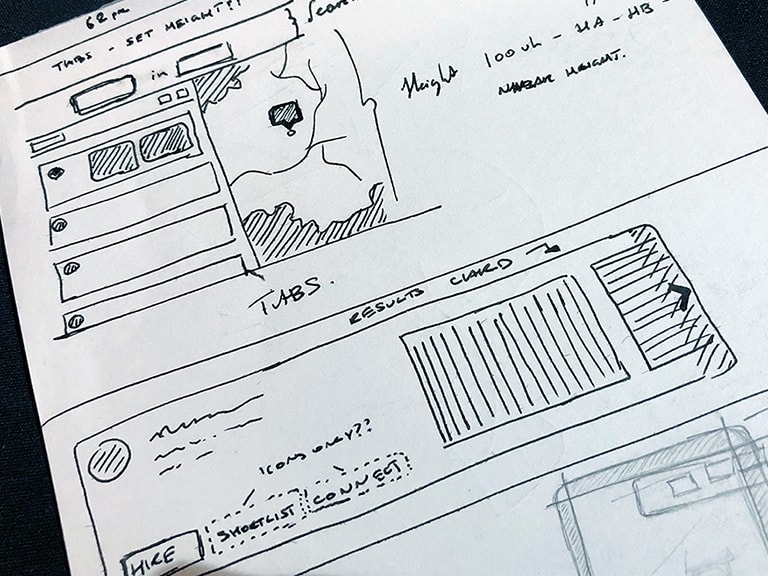 TABS - SET HEIGHT??
in
Height 100vh - HA - HB -
NAVBAR HEIGHT.
TABS.
RESULTS CARD
ICONS ONLY??
HIRE
SHORTLIST
CONNECT